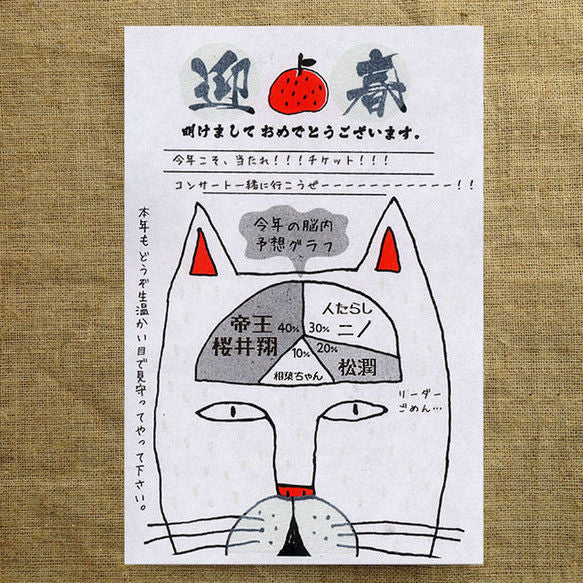 迎春
明けましておめでとうございます。
今年こそ、当たれ!!!チケット!!!
コンサート一緒に行こうぜーーーーーーーーーーー!!
今年の脳内
予想グラフ
帝王
桜井翔
40%
人たらし
ニノ
30%
20%
松潤
10%
相葉ちゃん
リーダー
ごめん…
本年もどうぞ生温かい目で見守ってやって下さい。